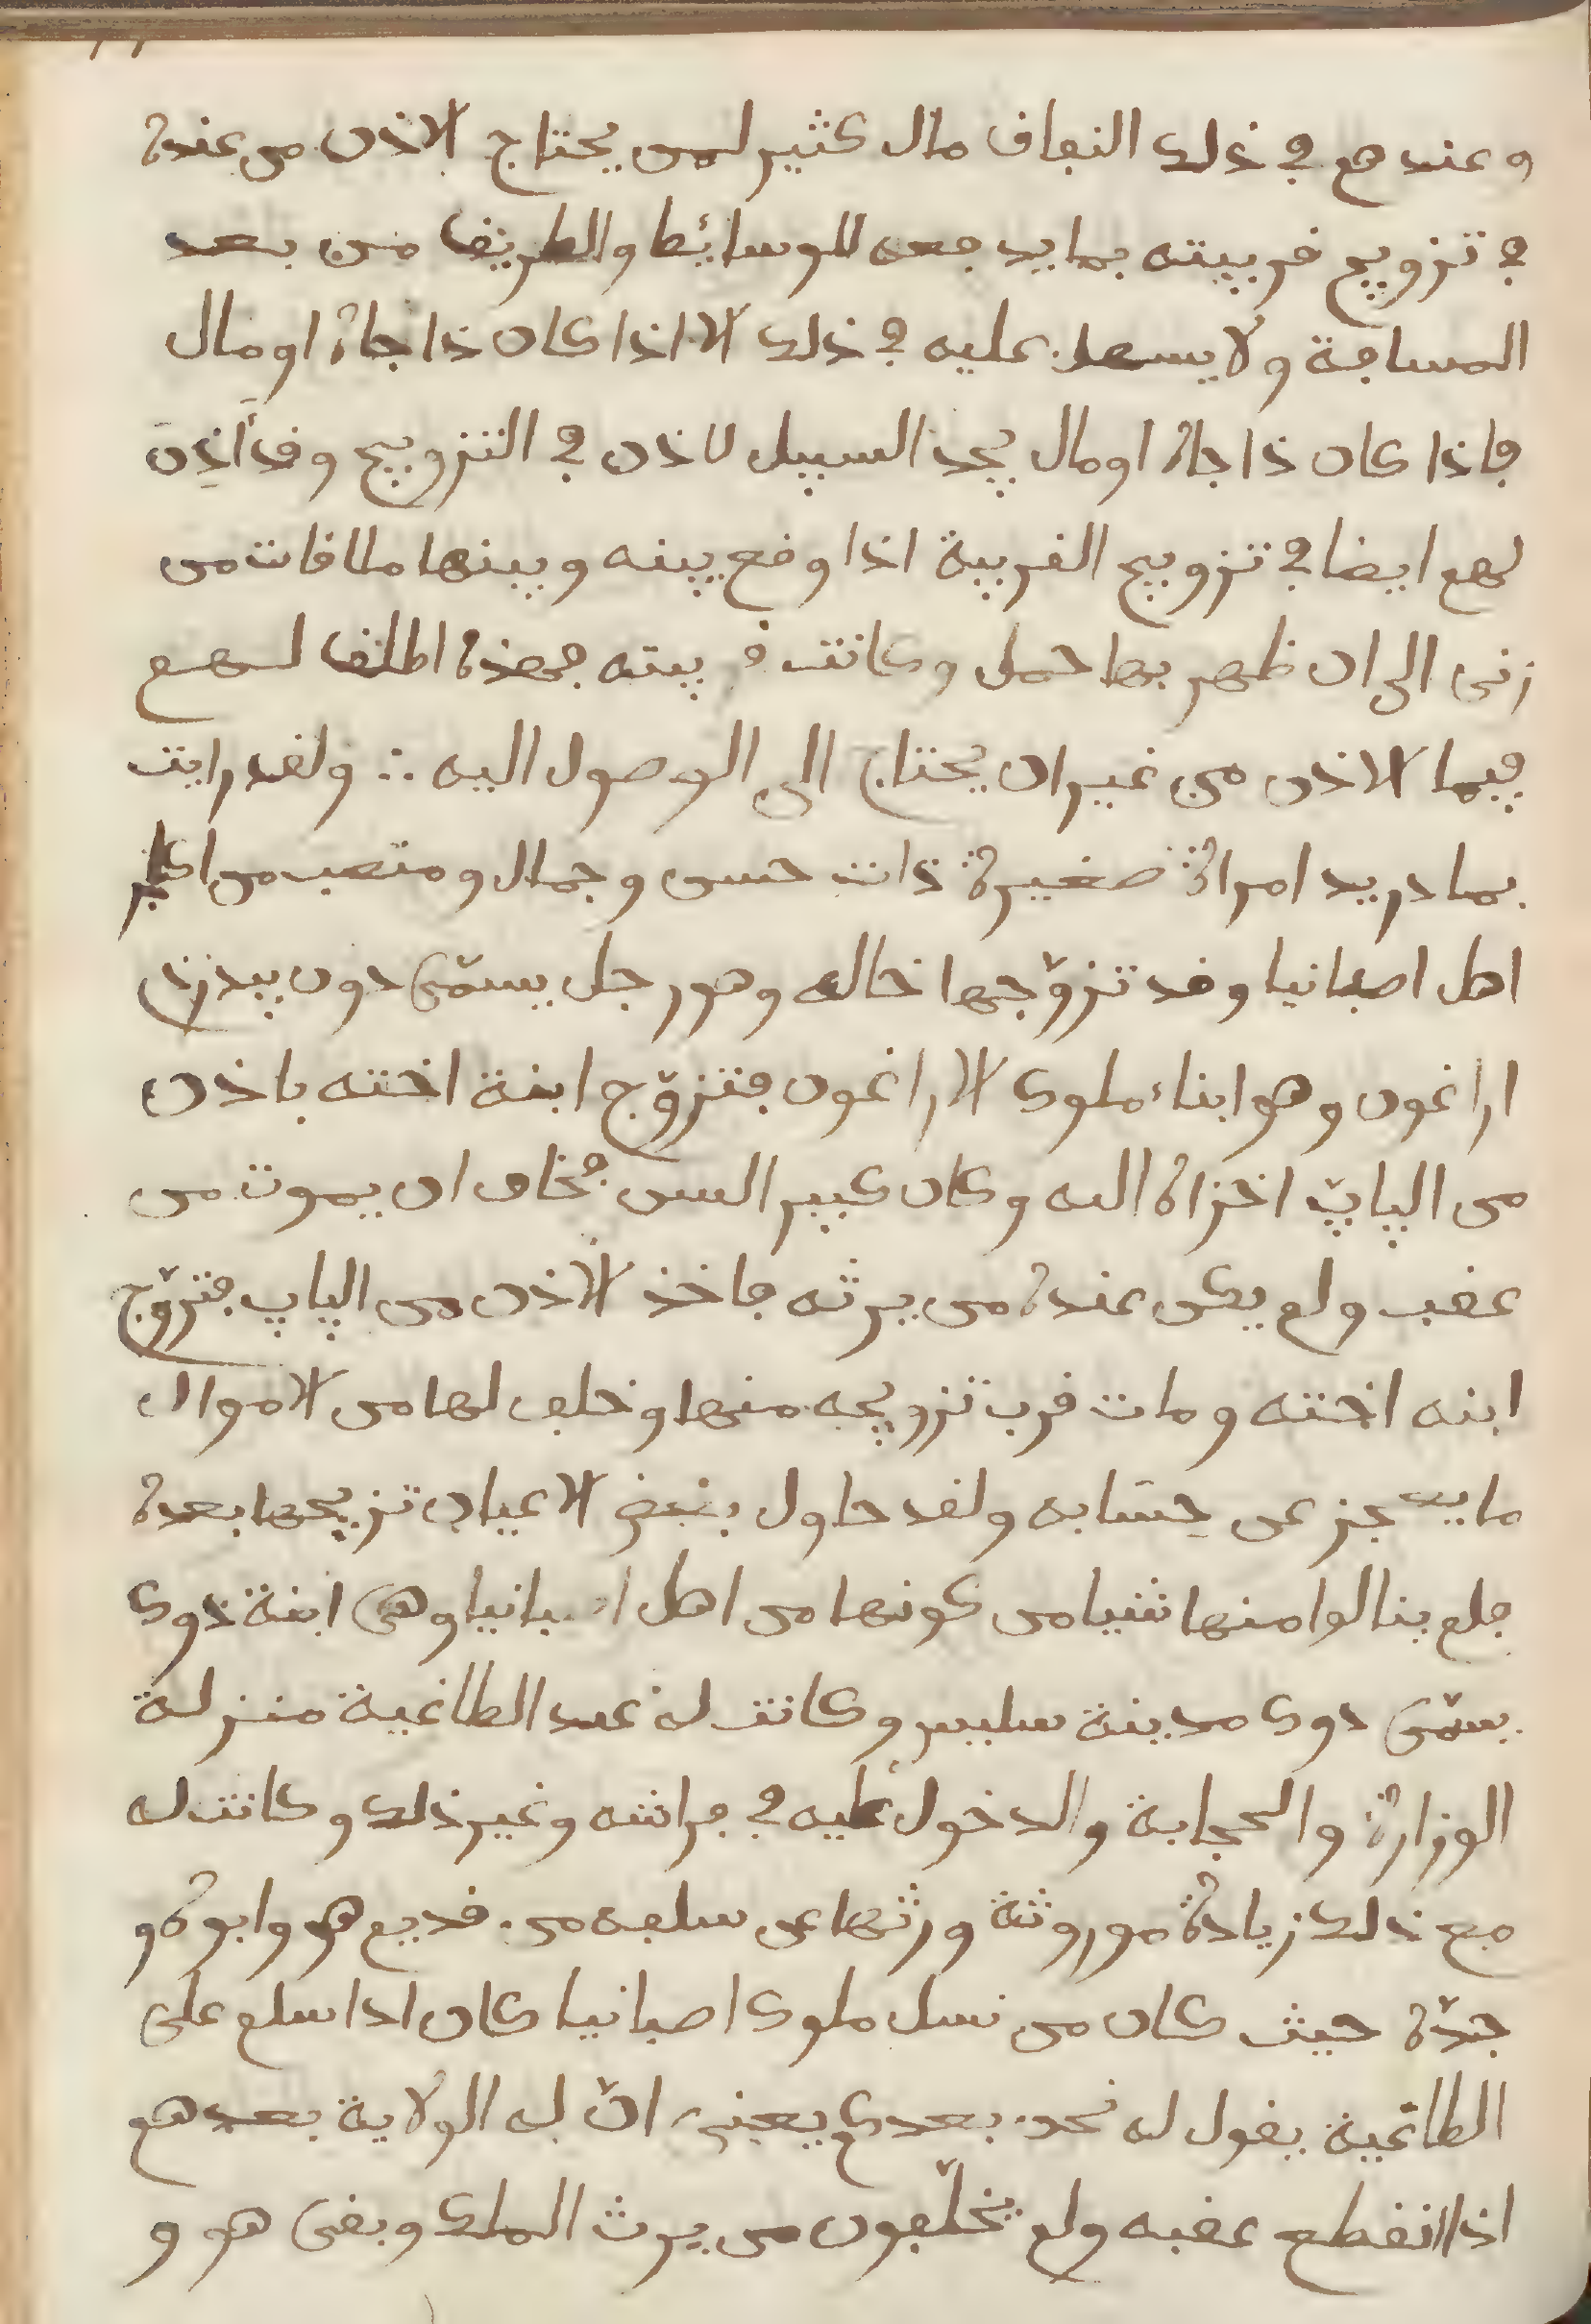 وعندهم في ذلك النفاق مال كثير لمن يحتاج الاذن من عنده
في تزويج قريبته بما يدفعه للوسائط والطريق من بعد
المسافة ولا يسهل عليه في ذلك الا اذا كان ذا جاه او مال
فاذا كان ذا جاه او مال يجد السبيل لاذن في التزويج وقد أَذِنَ
لهم ايضا في تزويج القريبة اذا وقع بينه وبينها ملاقات من
زنى الى ان ظهر بها حمل وكانت في بيته فهذه اطلق لهم
فيها الاذن من غير ان يحتاج الى الوصول اليه ∴ ولقد رايت
بمادريد امراة صغيرة ذات حسن وجمال ومنصب من اكابر
اهل اصبانيا وقد تزوّجها خالها وهو رجل يسمّى دون بيدرد
اراغون وهو ابناء ملوك الاراغون فتزوّج ابنة اخته باذن
من الپاپ اخزاه الله وكان كبير السن فخاف ان يموت من
عقب ولم يكن عنده من يرثه فاخذ الاذن من الپاپ فتزوّج
ابنه اخته ومات قرب تزويجه منها وخلف لها من الاموال
ما يعجز عن حِسَابه ولقد حاول بعض الاعيان تزيجها بعده
فلم ينالوا منها شيا من كونها من اهل اصبانيا وهي ابنة دوك
يسمّى دوك مدينة سليس وكانت له عند الطاغية منزلة
الوزارة والحجابة والدخول عليه في فراشه وغير ذلك وكانت له
مع ذلك زيادة موروثة ورثها عن سلفه من قديم هو وابوه و
جدّه حيث كان من نسل ملوك اصبانيا كان اذا سلم على
الطاغية يقول له نحن بعدكم يعني انّ له الولاية بعدهم
اذا انقطع عقبه ولم يخلّفون من يرث الملك وبقى هو و